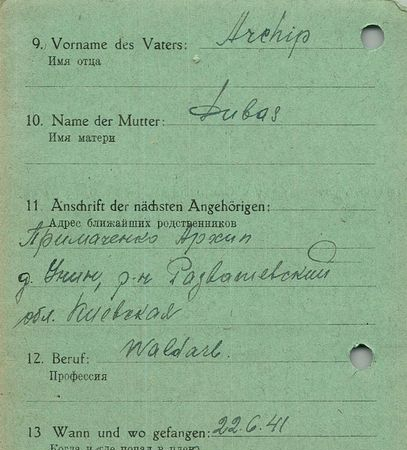 9. Vorname des Vaters: Archip
Имя отца
10. Name der Mutter: Dubas
Имя матери
11. Anschrift der nächsten Angehörigen:
Адрес ближайших родственников
Примаченко Архип
д. Унин, р-н Розважевский
обл. Киевская
12. Beruf: Waldarb.
Профессия
13 Wann und wo gefangen: 22.6.41
Когда и где попал в плен